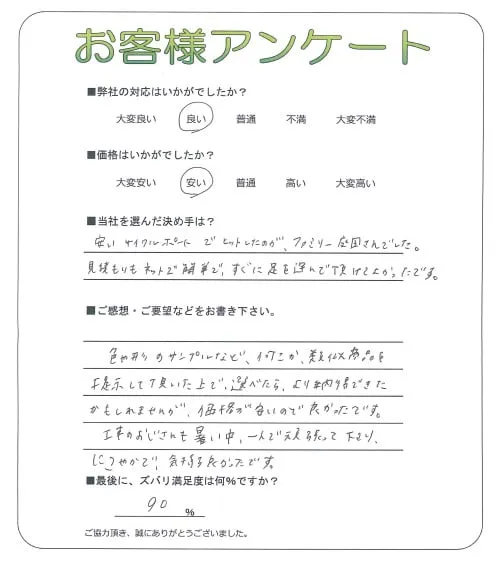 お客様アンケート
■弊社の対応はいかがでしたか？
大変良い 良い 普通 不満 大変不満
■価格はいかがでしたか？
大変安い 安い 普通 高い 大変高い
■当社を選んだ決め手は？
安い サイクルポート でヒットしたのが、ファミリー庭園さんでした。
見積もりもネットで簡単で、すぐに足を運んで頂けてよかったです。
■ご感想・ご要望などをお書き下さい。
色や形のサンプルなど、何こか、類似商品を
提示して頂いた上で、選べたら、より納得できた
かもしれませんが、価格が安いので良かったです。
工事のおじさんも暑い中、一人で頑張って下さり、
にこやかで、気持ち良かったです。
■最後に、ズバリ満足度は何％ですか？
90 %
ご協力頂き、誠にありがとうございました。